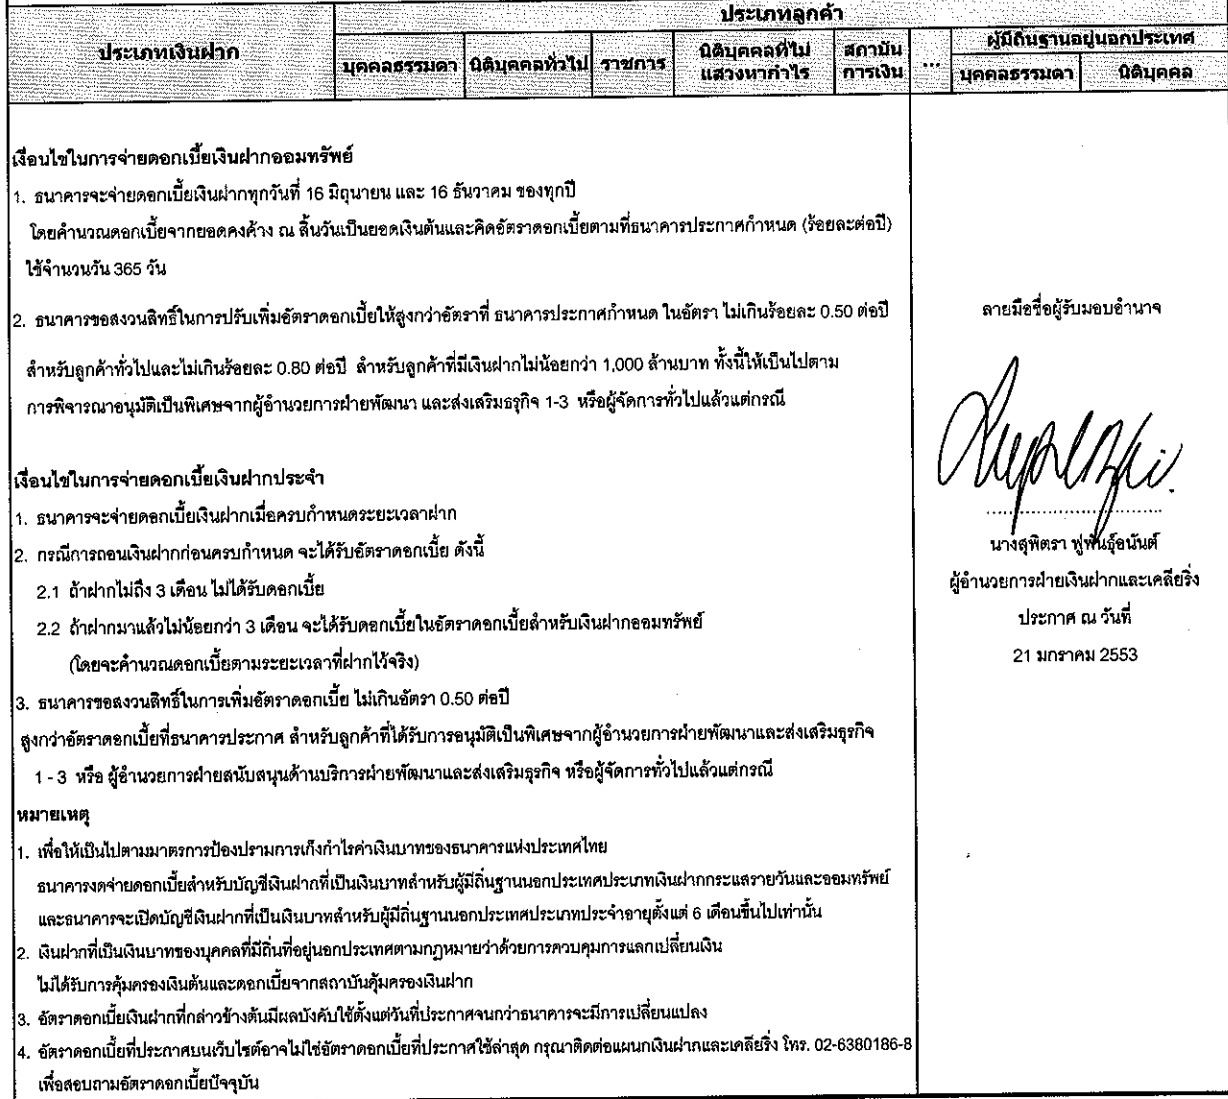 ประเภทลูกค้า
ประเภทเงินฝาก
บุคคลธรรมดา
นิติบุคคลทั่วไป
ราชการ
นิติบุคคลที่ไม่
แสวงหากำไร
สถาบัน
การเงิน
...
ผู้มีถิ่นฐานอยู่นอกประเทศ
บุคคลธรรมดา
นิติบุคคล
เงื่อนไขในการจ่ายดอกเบี้ยเงินฝากออมทรัพย์
1. ธนาคารจะจ่ายดอกเบี้ยเงินฝากทุกวันที่ 16 มิถุนายน และ 16 ธันวาคม ของทุกปี
โดยคำนวณดอกเบี้ยจากยอดคงค้าง ณ สิ้นวันเป็นยอดเงินต้นและคิดอัตราดอกเบี้ยตามที่ธนาคารประกาศกำหนด (ร้อยละต่อปี)
ใช้จำนวนวัน 365 วัน
2. ธนาคารขอสงวนสิทธิ์ในการปรับเพิ่มอัตราดอกเบี้ยให้สูงกว่าอัตราที่ ธนาคารประกาศกำหนด ในอัตรา ไม่เกินร้อยละ 0.50 ต่อปี
สำหรับลูกค้าทั่วไปและไม่เกินร้อยละ 0.80 ต่อปี สำหรับลูกค้าที่มีเงินฝากไม่น้อยกว่า 1,000 ล้านบาท ทั้งนี้ให้เป็นไปตาม
การพิจารณาอนุมัติเป็นพิเศษจากผู้อำนวยการฝ่ายพัฒนา และส่งเสริมธุรกิจ 1-3 หรือผู้จัดการทั่วไปแล้วแต่กรณี
เงื่อนไขในการจ่ายดอกเบี้ยเงินฝากประจำ
1. ธนาคารจะจ่ายดอกเบี้ยเงินฝากเมื่อครบกำหนดระยะเวลาฝาก
2. กรณีการถอนเงินฝากก่อนครบกำหนด จะได้รับอัตราดอกเบี้ย ดังนี้
2.1 ถ้าฝากไม่ถึง 3 เดือน ไม่ได้รับดอกเบี้ย
2.2 ถ้าฝากมาแล้วไม่น้อยกว่า 3 เดือน จะได้รับดอกเบี้ยในอัตราดอกเบี้ยสำหรับเงินฝากออมทรัพย์
(โดยจะคำนวณดอกเบี้ยตามระยะเวลาที่ฝากไว้จริง)
3. ธนาคารขอสงวนสิทธิ์ในการเพิ่มอัตราดอกเบี้ย ไม่เกินอัตรา 0.50 ต่อปี
สูงกว่าอัตราดอกเบี้ยที่ธนาคารประกาศ สำหรับลูกค้าที่ได้รับการอนุมัติเป็นพิเศษจากผู้อำนวยการฝ่ายพัฒนาและส่งเสริมธุรกิจ
1 - 3 หรือ ผู้อำนวยการฝ่ายสนับสนุนด้านบริการฝ่ายพัฒนาและส่งเสริมธุรกิจ หรือผู้จัดการทั่วไปแล้วแต่กรณี
หมายเหตุ
1. เพื่อให้เป็นไปตามมาตรการป้องปรามการเก็งกำไรค่าเงินบาทของธนาคารแห่งประเทศไทย
ธนาคารงดจ่ายดอกเบี้ยสำหรับบัญชีเงินฝากที่เป็นเงินบาทสำหรับผู้มีถิ่นฐานนอกประเทศประเภทเงินฝากกระแสรายวันและออมทรัพย์
และธนาคารจะเปิดบัญชีเงินฝากที่เป็นเงินบาทสำหรับผู้มีถิ่นฐานนอกประเทศประเภทประจำอายุตั้งแต่ 6 เดือนขึ้นไปเท่านั้น
2. เงินฝากที่เป็นเงินบาทของบุคคลที่มีถิ่นที่อยู่นอกประเทศตามกฎหมายว่าด้วยการควบคุมการแลกเปลี่ยนเงิน
ไม่ได้รับการคุ้มครองเงินต้นและดอกเบี้ยจากสถาบันคุ้มครองเงินฝาก
3. อัตราดอกเบี้ยเงินฝากที่กล่าวข้างต้นมีผลบังคับใช้ตั้งแต่วันที่ประกาศจนกว่าธนาคารจะมีการเปลี่ยนแปลง
4. อัตราดอกเบี้ยที่ประกาศบนเว็บไซต์อาจไม่ใช่อัตราดอกเบี้ยที่ประกาศใช้ล่าสุด กรุณาติดต่อแผนกเงินฝากและเคลียริ่ง โทร. 02-6380186-8
เพื่อสอบถามอัตราดอกเบี้ยปัจจุบัน
ลายมือชื่อผู้รับมอบอำนาจ
นางสุพิตรา ฟูพันธุ์อนันต์
ผู้อำนวยการฝ่ายเงินฝากและเคลียริ่ง
ประกาศ ณ วันที่
21 มกราคม 2553